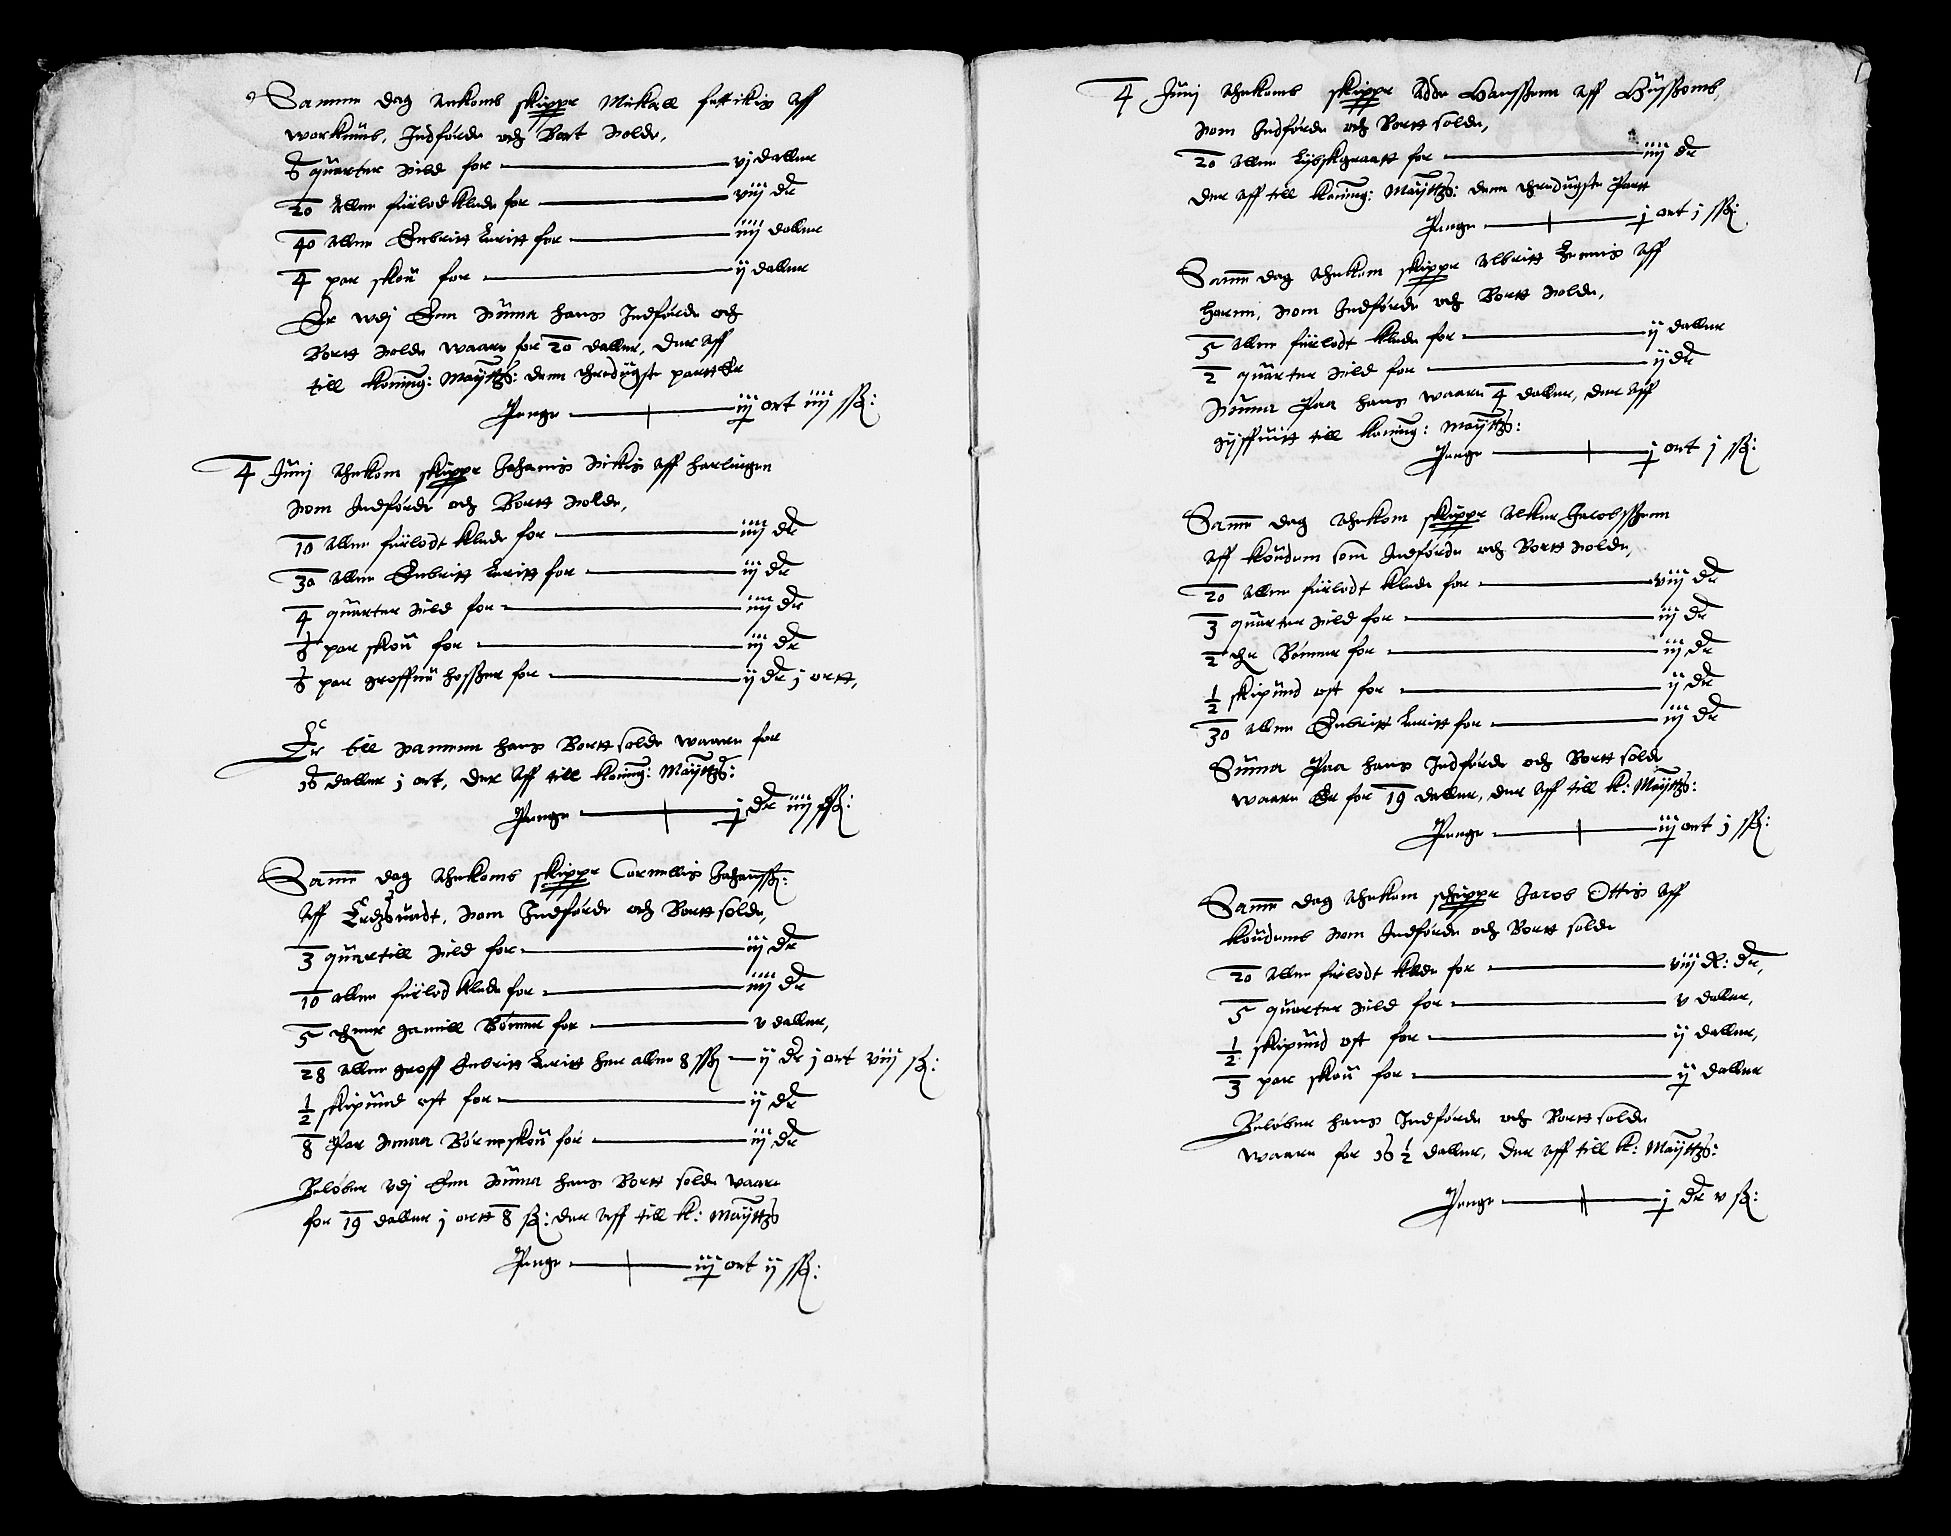 Samme dag Ankomb skipper Mickell fettikis Aff
workumb, Indførde och Bort solde,
6 quarter sild for — vj daller
20 Allen furlod klede for — viij dr
40 Allen Enbritt Leritt for — iiij daller
4 par skou for — ij daller
Er wdj Een Suma hans Indførde och
Bortt solde waare for 20 daller, der Aff
till koning: Maÿttz: denn thredugste partt Er
Penge — iij ort iiij sß:
4 Junj Ankom skipper Johanis Sickis Aff harlingen
som Indførde och Bortt solde,
10 Allen furlodt klede for — iiij dr
30 Allen Enbritt Leritt for — iij dr
4 quarter sild for — iiij dr
8 par skou for — iij dr
6 par groffue hosser for — ij dr j ortt,
Er till samenn hans Bortt solde waare for
16 daller j ort, der Aff till koning: Maÿttz:
Penge — j dr iiij sß:
Same dag Ankomb skipper Cornellis Johanß:
Aff , som Indførde och Bortt solde,
3 quartill sild for — iij dr
10 Allen furlod klede for — iiij dr
5 gamill Bømer for — v daller,
28 Allen groff Enbritt Leritt huer allen 8 sß — ij dr j ort viij sß:
1/2 skipund ost for — ij dr
8 Par smaa Børne skou for — iij dr
Beløber vdj Een Suma hans Bortt solde waare
for 19 daller j ortt 8 sß: der Aff till k: Maÿttz
Penge — iij ort ij sß:
4 Junj Ankomb skipper Adde Hanssenn Aff
som Indførde och Bortt solde,
20 Allen Lybskgraatt for — iiij dr
der Aff till koning: Maÿttz: denn thredugste Partt
Penge — j ort j sß:
Same dag Ankom skipper Albritt Aff
som Indførde och Bortt solde,
5 Allen furlodt klede for — ij daller
2 quarter sild for — ij dr
Suma Paa hans waare 4 daller, der Aff
gyffuitt till koning: Maÿttz:
Penge — j ort j sß:
Same dag Ankom skipper Alker Jacobssenn
Aff koudum som Indførde och Bortt solde,
20 Allen furlodt klede for — viij dr
3 quarter sild for — iij dr
2 Bømer for — iij dr
1/2 skipund ost for — ij dr
30 Allen Enbritt Leritt for — iij dr
Suma Paa hans Indførde och Bortt solde
waare Er for 19 daller, der Aff till k: Maÿttz:
Penge — iij ort j sß:
Same dag Ankom schipper Jacob Ottis Aff
koudumb som Indførde och Bortt solde
20 Allen furlodt klede for — viij dr,
5 quarter sild for — v daller,
1/2 skipund ost for — ij daller,
3 par skou for — ij daller
Beløber hans Indførde och Bortt solde
waare for 16 1/2 daller, der Aff till k: Maÿttz:
Penge — j dr v sß: